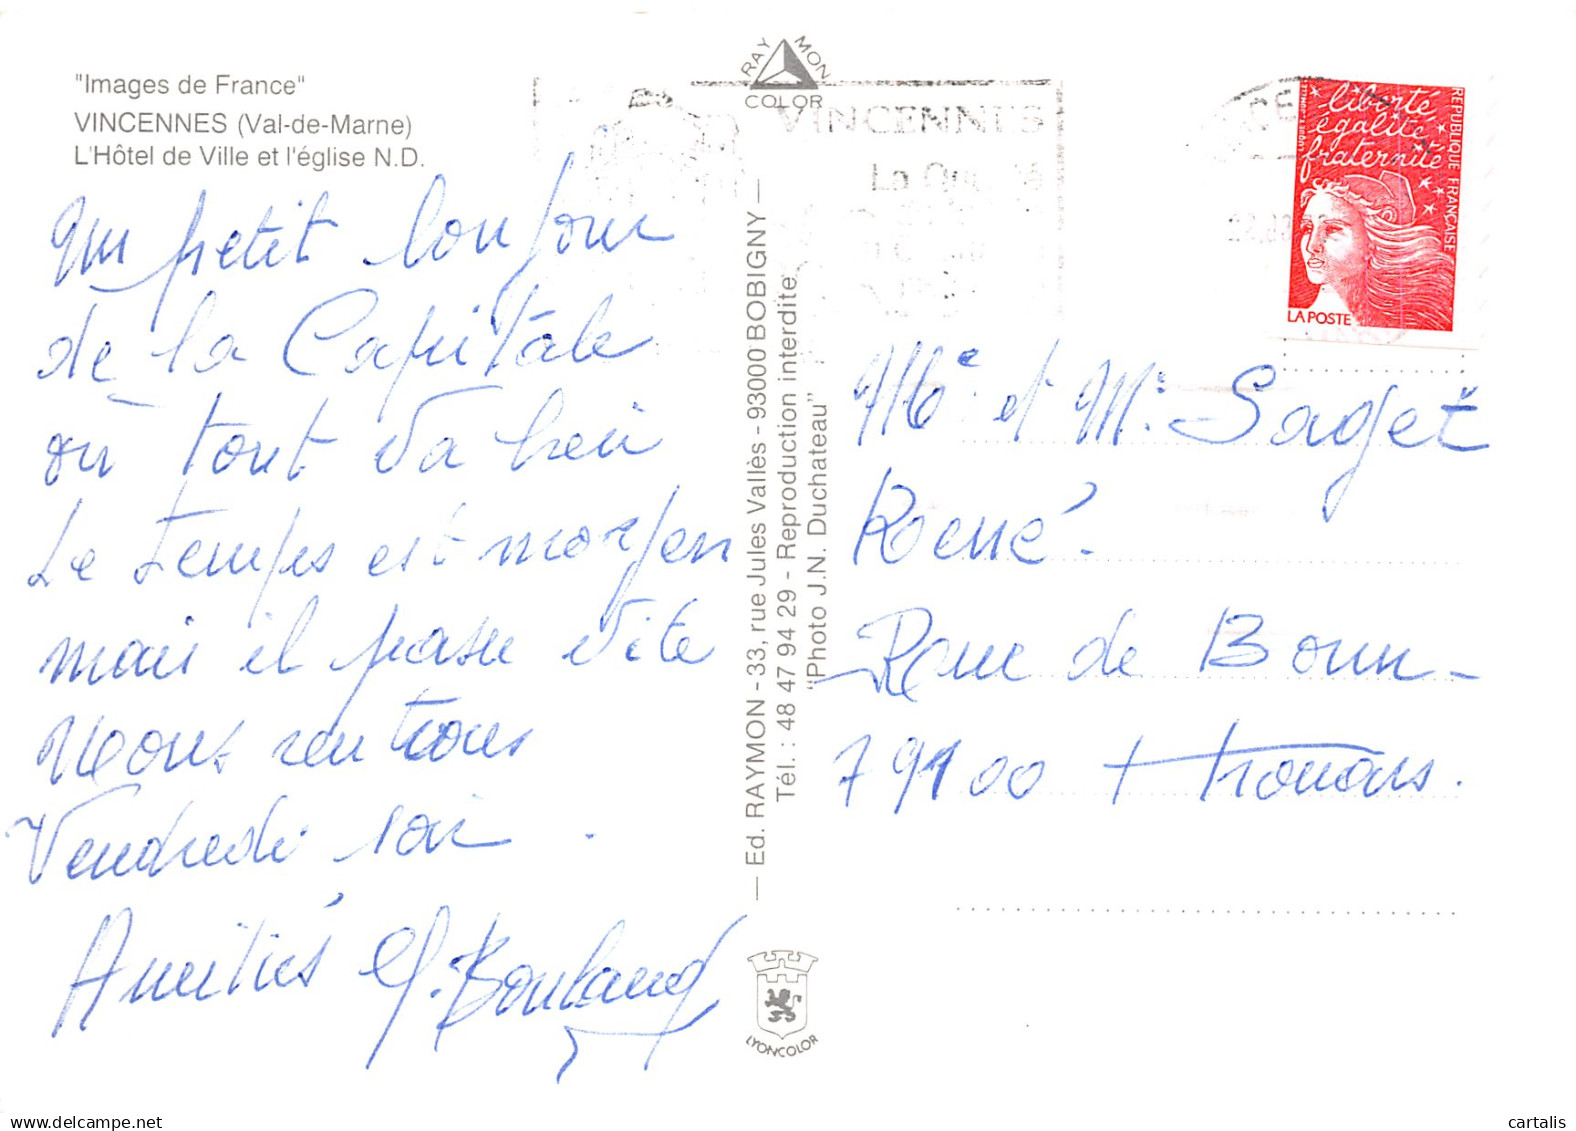 "Images de France"
VINCENNES (Val-de-Marne)
L'Hôtel de Ville et l'église N.D.
RAYMON
COLOR
VINCENNES
liberté
égalité
fraternité
REPUBLIQUE FRANÇAISE
LA POSTE
Un petit bonjour
de la Capitale
où tout va bien
Le temps est moyen
mais il passe vite
Nous rentrons
Vendredi soir.
Amitiés
Ed. RAYMON - 33, rue Jules Vallès - 93000 BOBIGNY
Tél. : 48 47 94 29 - Reproduction interdite
"Photo J.N. Duchateau"
Me et Mr Saget
René.
Rue de Bonn
79100 Thouars.
LYONCOLOR
delcampe.net
cartalis